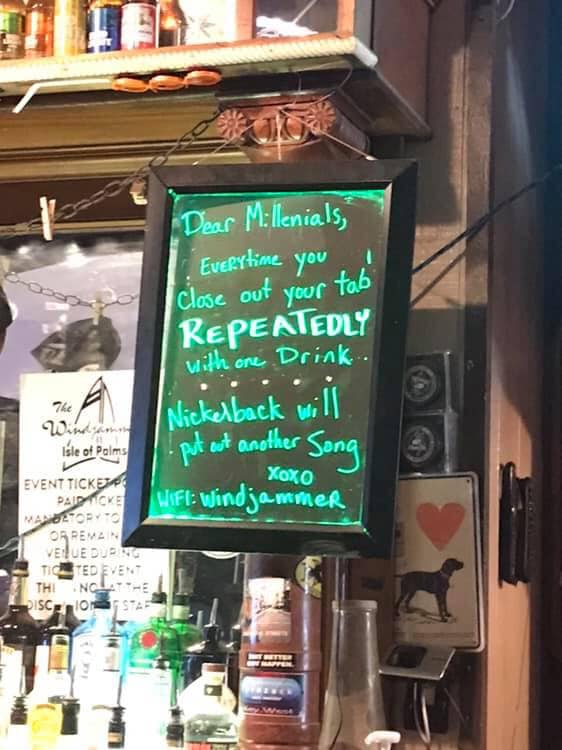 Dear Millenials,
Everytime you
Close out your tab
REPEATEDLY
with one Drink...
Nickelback will
put out another Song
XOXO
WIFI: Windjammer
The
Isle of Palms
EVENT TICKET
PAID TICKET
MANDATORY TO
OR REMAIN
VENUE DURING
TICKETED EVENT
AT THE